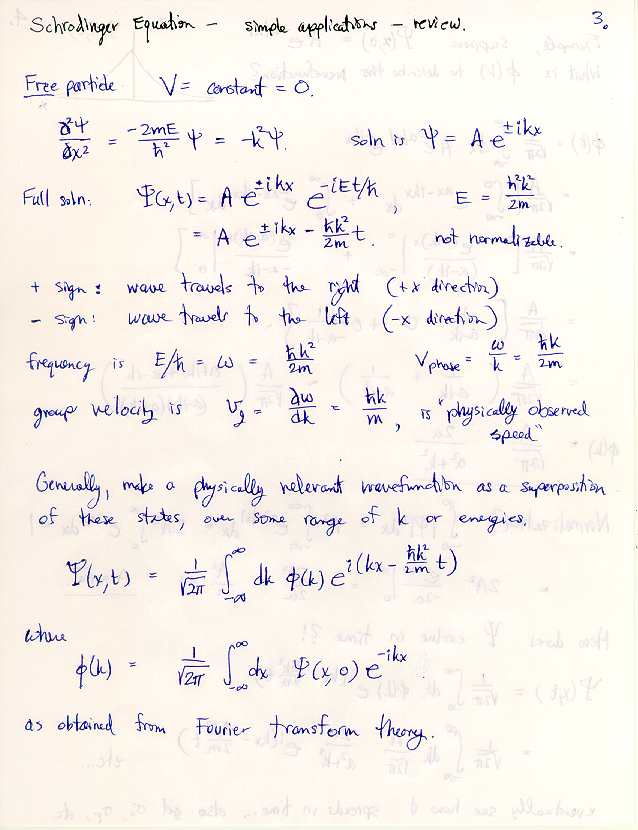 Schrodinger Equation - simple applications - review. 3.
Free particle V = constant = 0.
∂²Ψ/∂x² = -2mE/ħ² Ψ = -k²Ψ. soln is Ψ = A e^{±ikx}
Full soln: Ψ(x,t) = A e^{±ikx} e^{-iEt/ħ}, E = ħ²k²/2m
= A e^{±ikx - ħk²/2m t}. not normalizable.
+ sign: wave travels to the right (+x direction)
- sign: wave travels to the left (-x direction)
frequency is E/ħ = ω = ħk²/2m V_phase = ω/k = ħk/2m
group velocity is v_g = ∂ω/∂k = ħk/m, is "physically observed
speed"
Generally, make a physically relevant wavefunction as a superposition
of these states, over some range of k or energies.
Ψ(x,t) = 1/√2π ∫_{-∞}^{∞} dk φ(k) e^{i(kx - ħk²/2m t)}
where
φ(k) = 1/√2π ∫_{-∞}^{∞} dx Ψ(x,0) e^{-ikx}.
as obtained from Fourier transform theory.